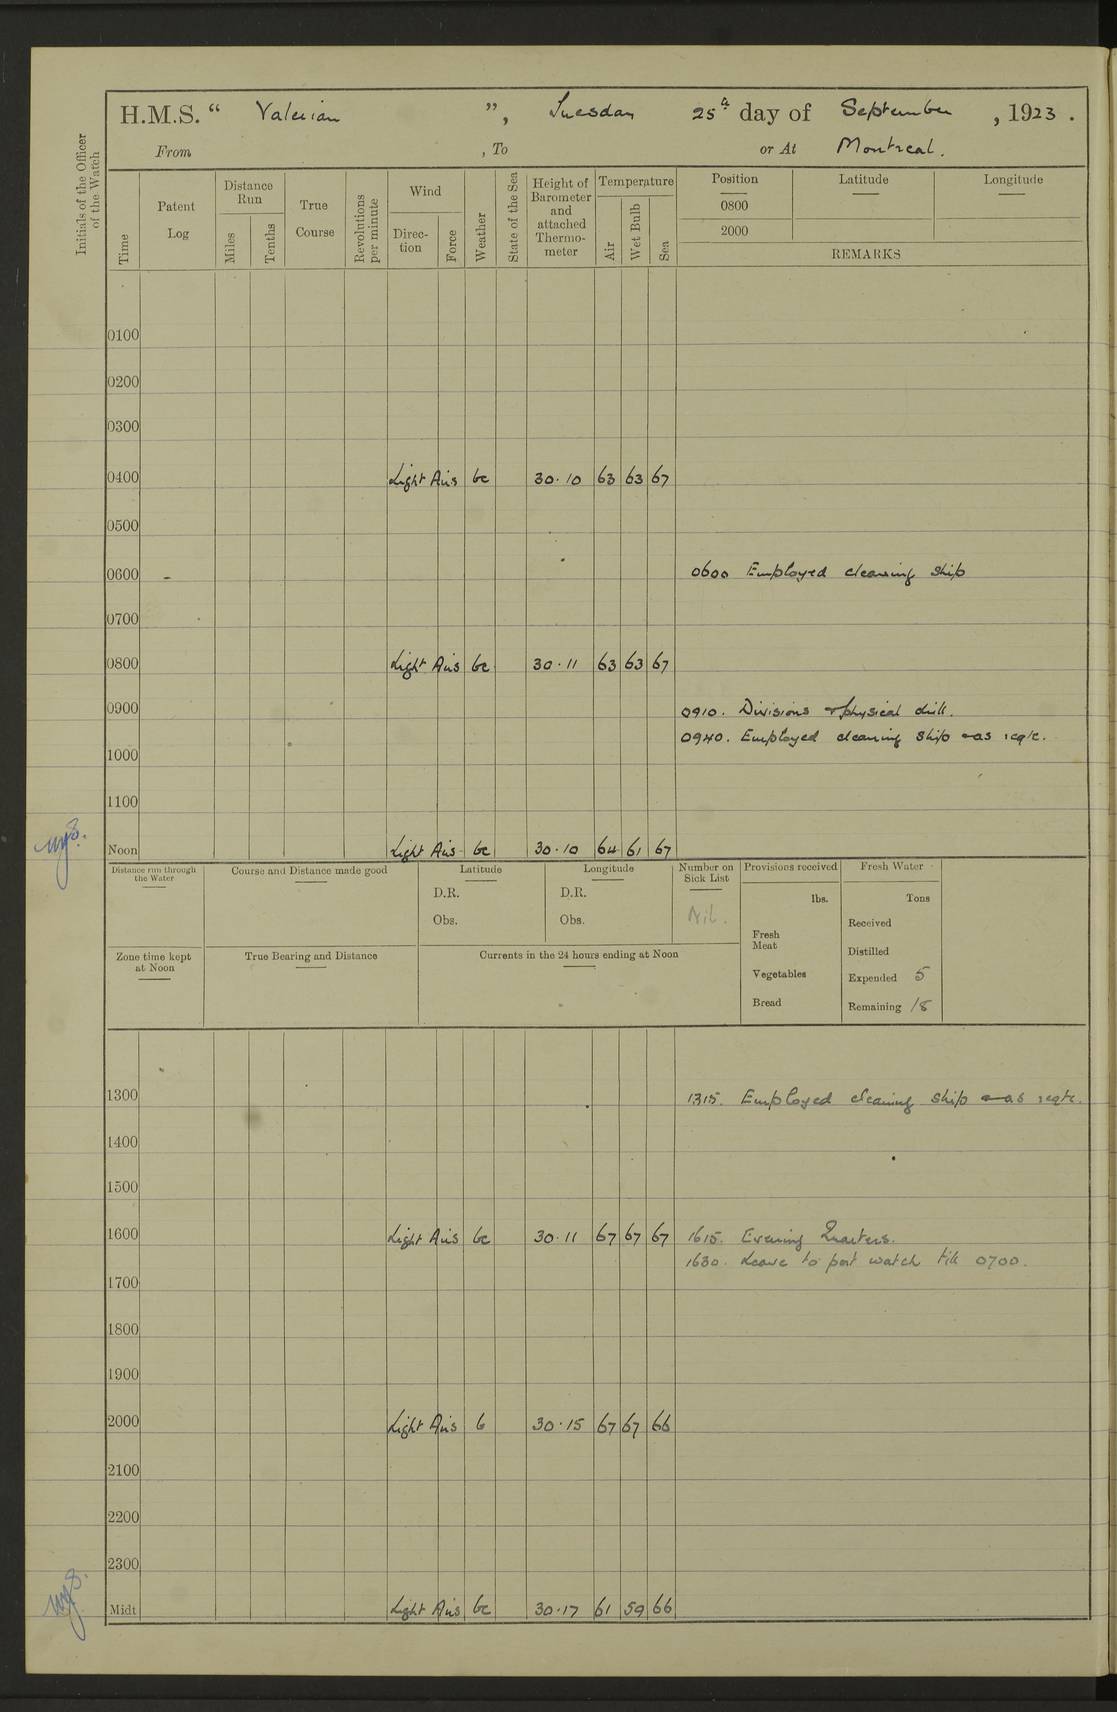 H.M.S. “ Valerian ”, Tuesday 25th day of September, 1923.
From , To or At Montreal.
Initials of the Officer of the Watch
Time
Patent Log
Distance Run
Miles
Tenths
True Course
Revolutions per minute
Wind
Direc-tion
Force
Weather
State of the Sea
Height of Barometer and attached Thermo-meter
Temperature
Air
Wet Bulb
Sea
Position Latitude Longitude
0800
2000
REMARKS
0100
0200
0300
0400 Light Airs bc 30.10 63 63 67
0500
0600 - 0600 Employed cleaning ship
0700
0800 Light Airs bc 30.11 63 63 67
0900 0910. Divisions & physical drill.
0940. Employed cleaning ship & as reqte.
1000
1100
Noon Light Airs bc 30.10 64 61 67
Distance run through the Water
Course and Distance made good
Latitude
D.R.
Obs.
Longitude
D.R.
Obs.
Number on Sick List
Nil.
Provisions received
lbs.
Fresh Meat
Vegetables
Bread
Fresh Water
Tons
Received
Distilled
Expended 5
Remaining 18
Zone time kept at Noon
True Bearing and Distance
Currents in the 24 hours ending at Noon
1300 1315. Employed cleaning ship & as reqte.
1400
1500
1600 Light Airs bc 30.11 67 67 67 1615. Evening Quarters.
1630. Leave to port watch till 0700.
1700
1800
1900
2000 Light Airs b 30.15 67 67 66
2100
2200
2300
Midt Light Airs bc 30.17 61 59 66